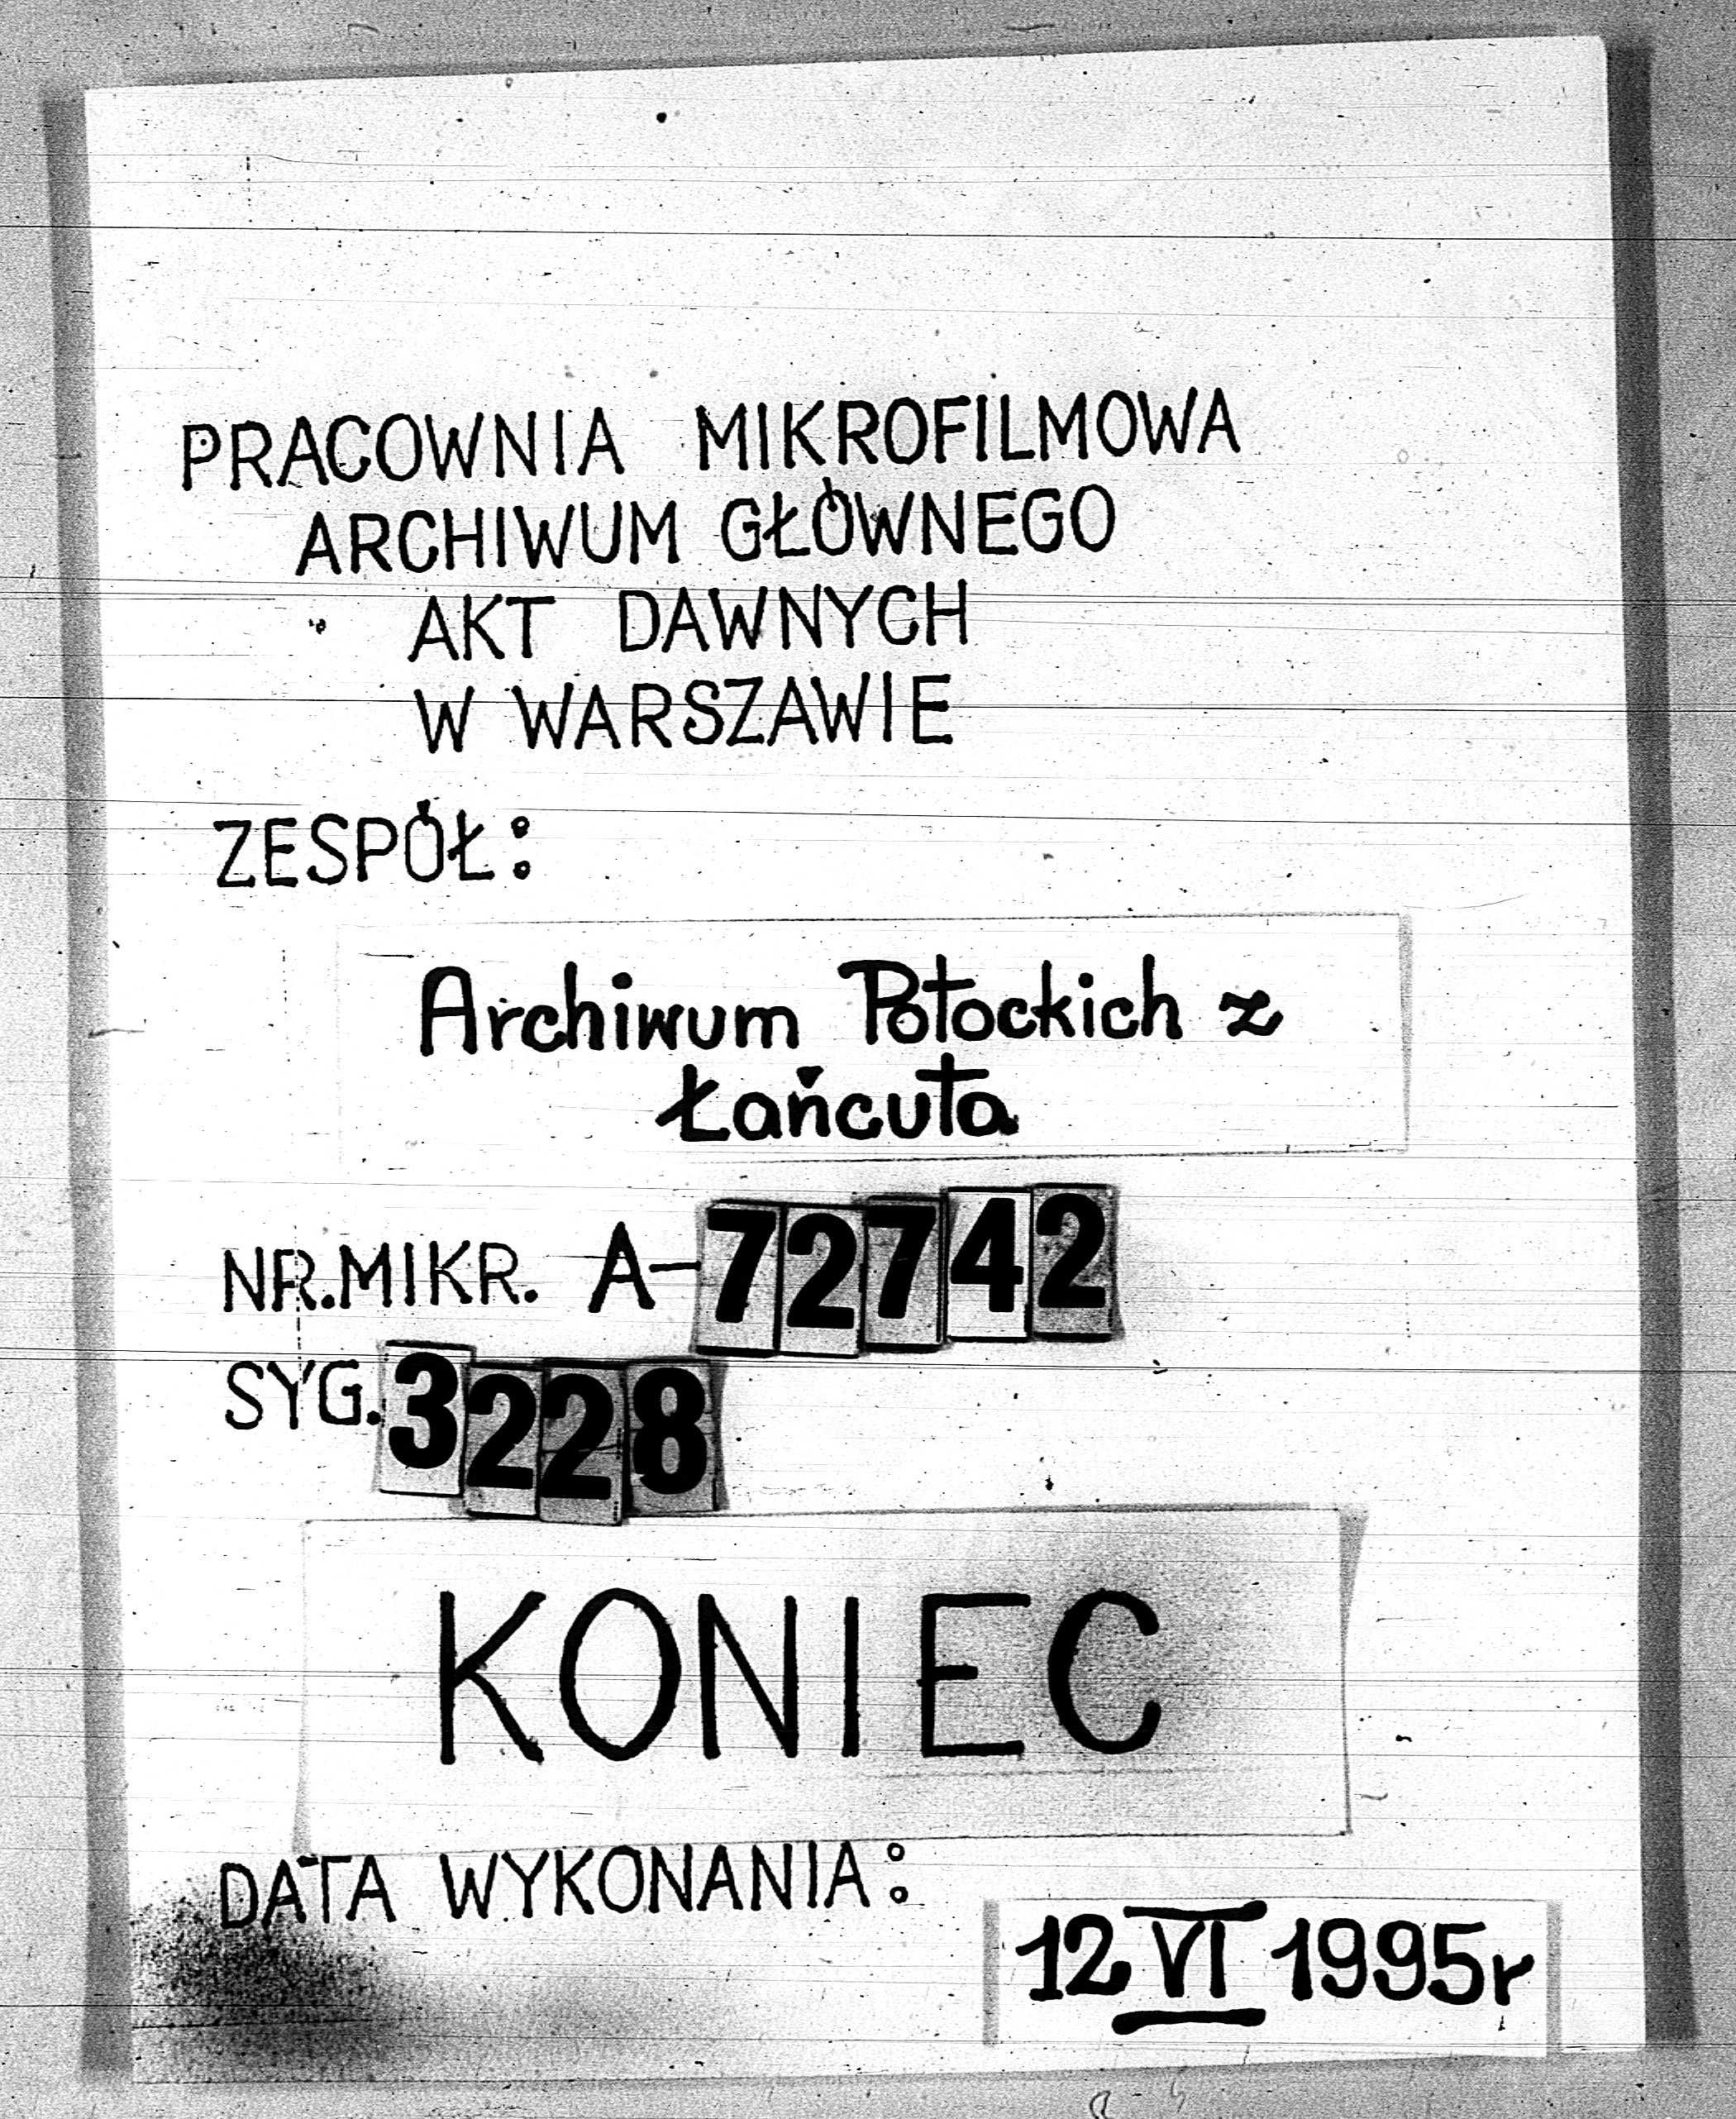 PRACOWNIA MIKROFILMOWA
ARCHIWUM GŁÓWNEGO
AKT DAWNYCH
W WARSZAWIE
ZESPÓŁ:
Archiwum Potockich z
Łańcuta
NR.MIKR. A-72742
SYG.3228
KONIEC
DATA WYKONANIA:
12 VI 1995r